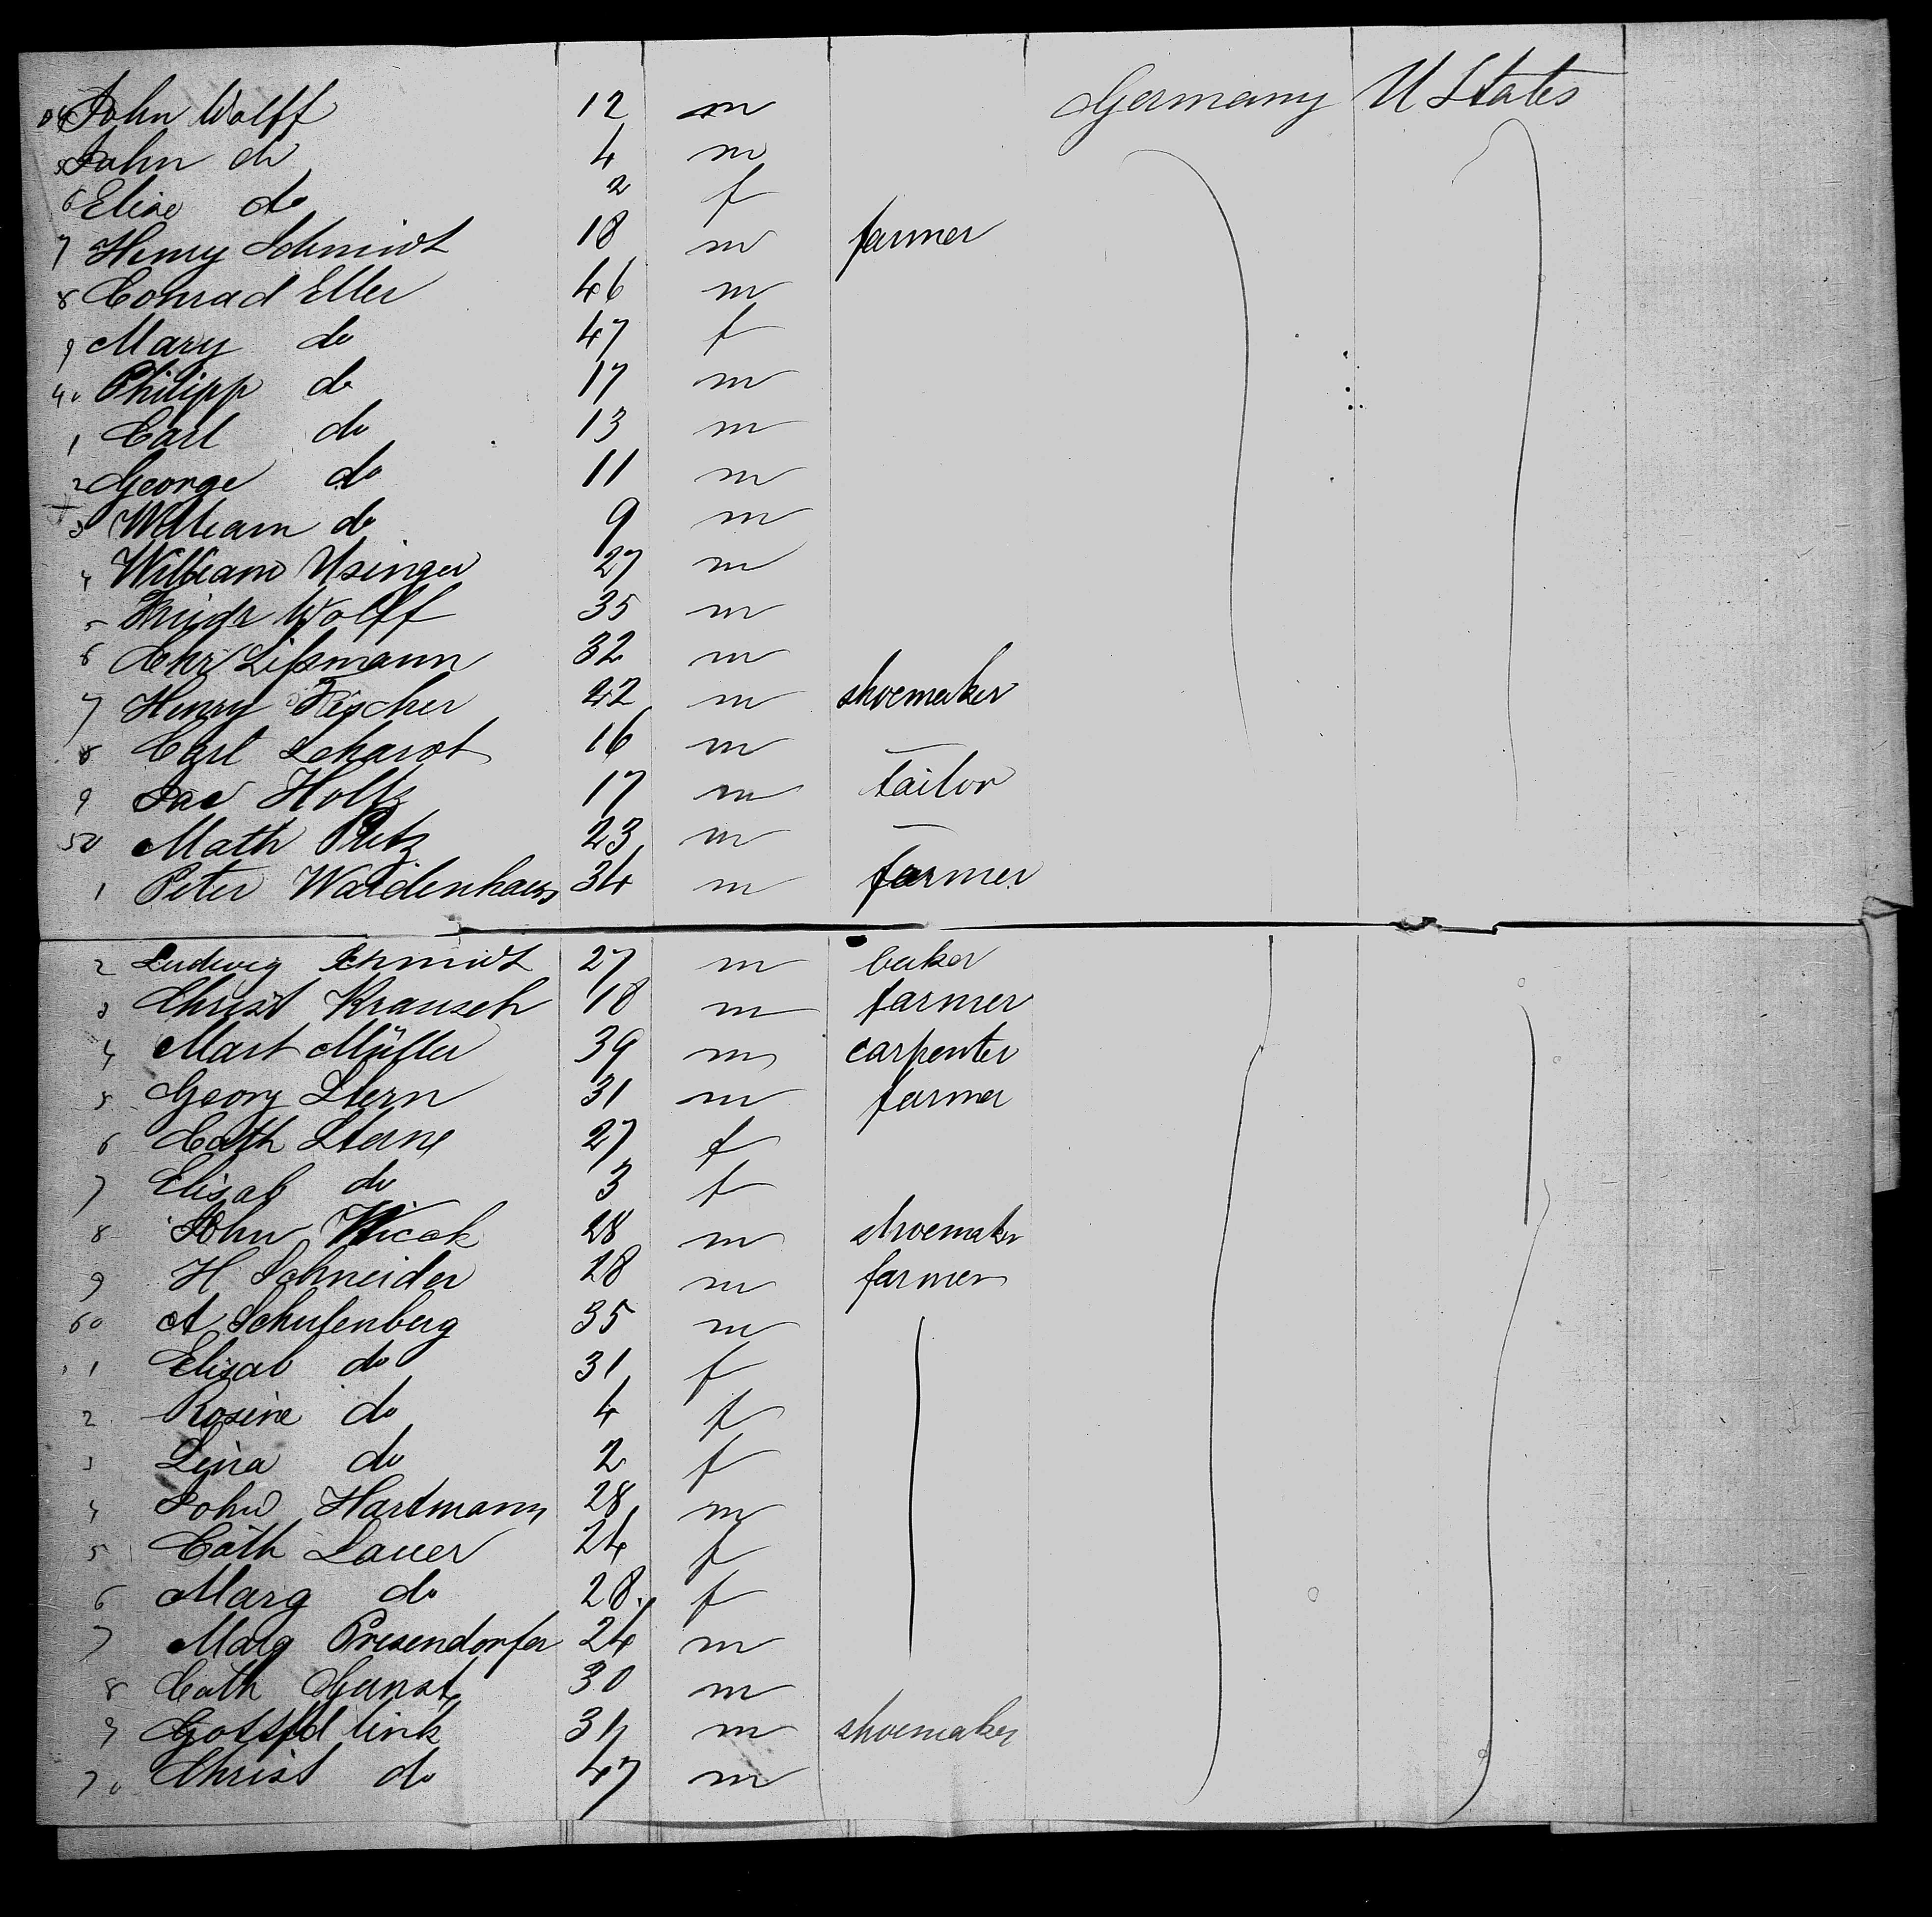 John Wolff 12 m Germany U States
5 John do 4 m
6 Elise do 2 f
7 Henry Schmidt 18 m farmer
8 Conrad Eller 46 m
9 Mary do 47 f
40 Philipp do 17 m
1 Carl do 13 m
2 George do 11 m
3 William do 9 m
4 William Usinger 27 m
5 Wolff 35 m
6 Chr Lißmann 32 m
7 Henry Fischer 22 m shoemaker
8 Carl Schardt 16 m —
9 Jac Holtz 17 m tailor
50 Math 23 m —
1 Peter Waidenhaus 34 m farmer
2 Ludwig Schmidt 27 m baker
3 Christ Krausch 18 m farmer
4 Mart Müller 39 m carpenter
5 Georg Stern 31 m farmer
6 Cath Sterne 27 f
7 Elisab do 3 f
8 John 28 m shoemaker
9 H Schneider 28 m farmer
60 A Schufenberg 35 m
1 Elisab do 31 f
2 Rosine do 4 f
3 Lina do 2 f
4 John Hartmann 28 m
5 Cath Lauer 24 f
6 Marg do 28 f
7 Marg Presendorfer 24 m
8 Cath 30 m
9 Gottfd link 34 m shoemaker
70 Christ do 47 m